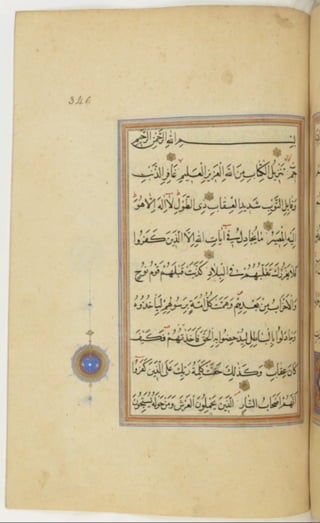 346
بسم الله الرحمن الرحيم
حم تنزيل الكتاب من الله العزيز العليم غافر الذنب
وقابل التوب شديد العقاب ذى الطول لا اله الا هو
اليه المصير ما يجادل فى آيات الله الا الذين كفروا
فلا يغررك تقلبهم فى البلاد كذبت قبلهم قوم نوح
والاحزاب من بعدهم وهمت كل امة برسولهم لياخذوه
وجادلوا بالباطل ليدحضوا به الحق فاخذتهم فكيف
كان عقاب وكذلك حقت كلمة ربك على الذين كفروا
انهم اصحاب النار الذين يحملون العرش ومن حوله يسبحون